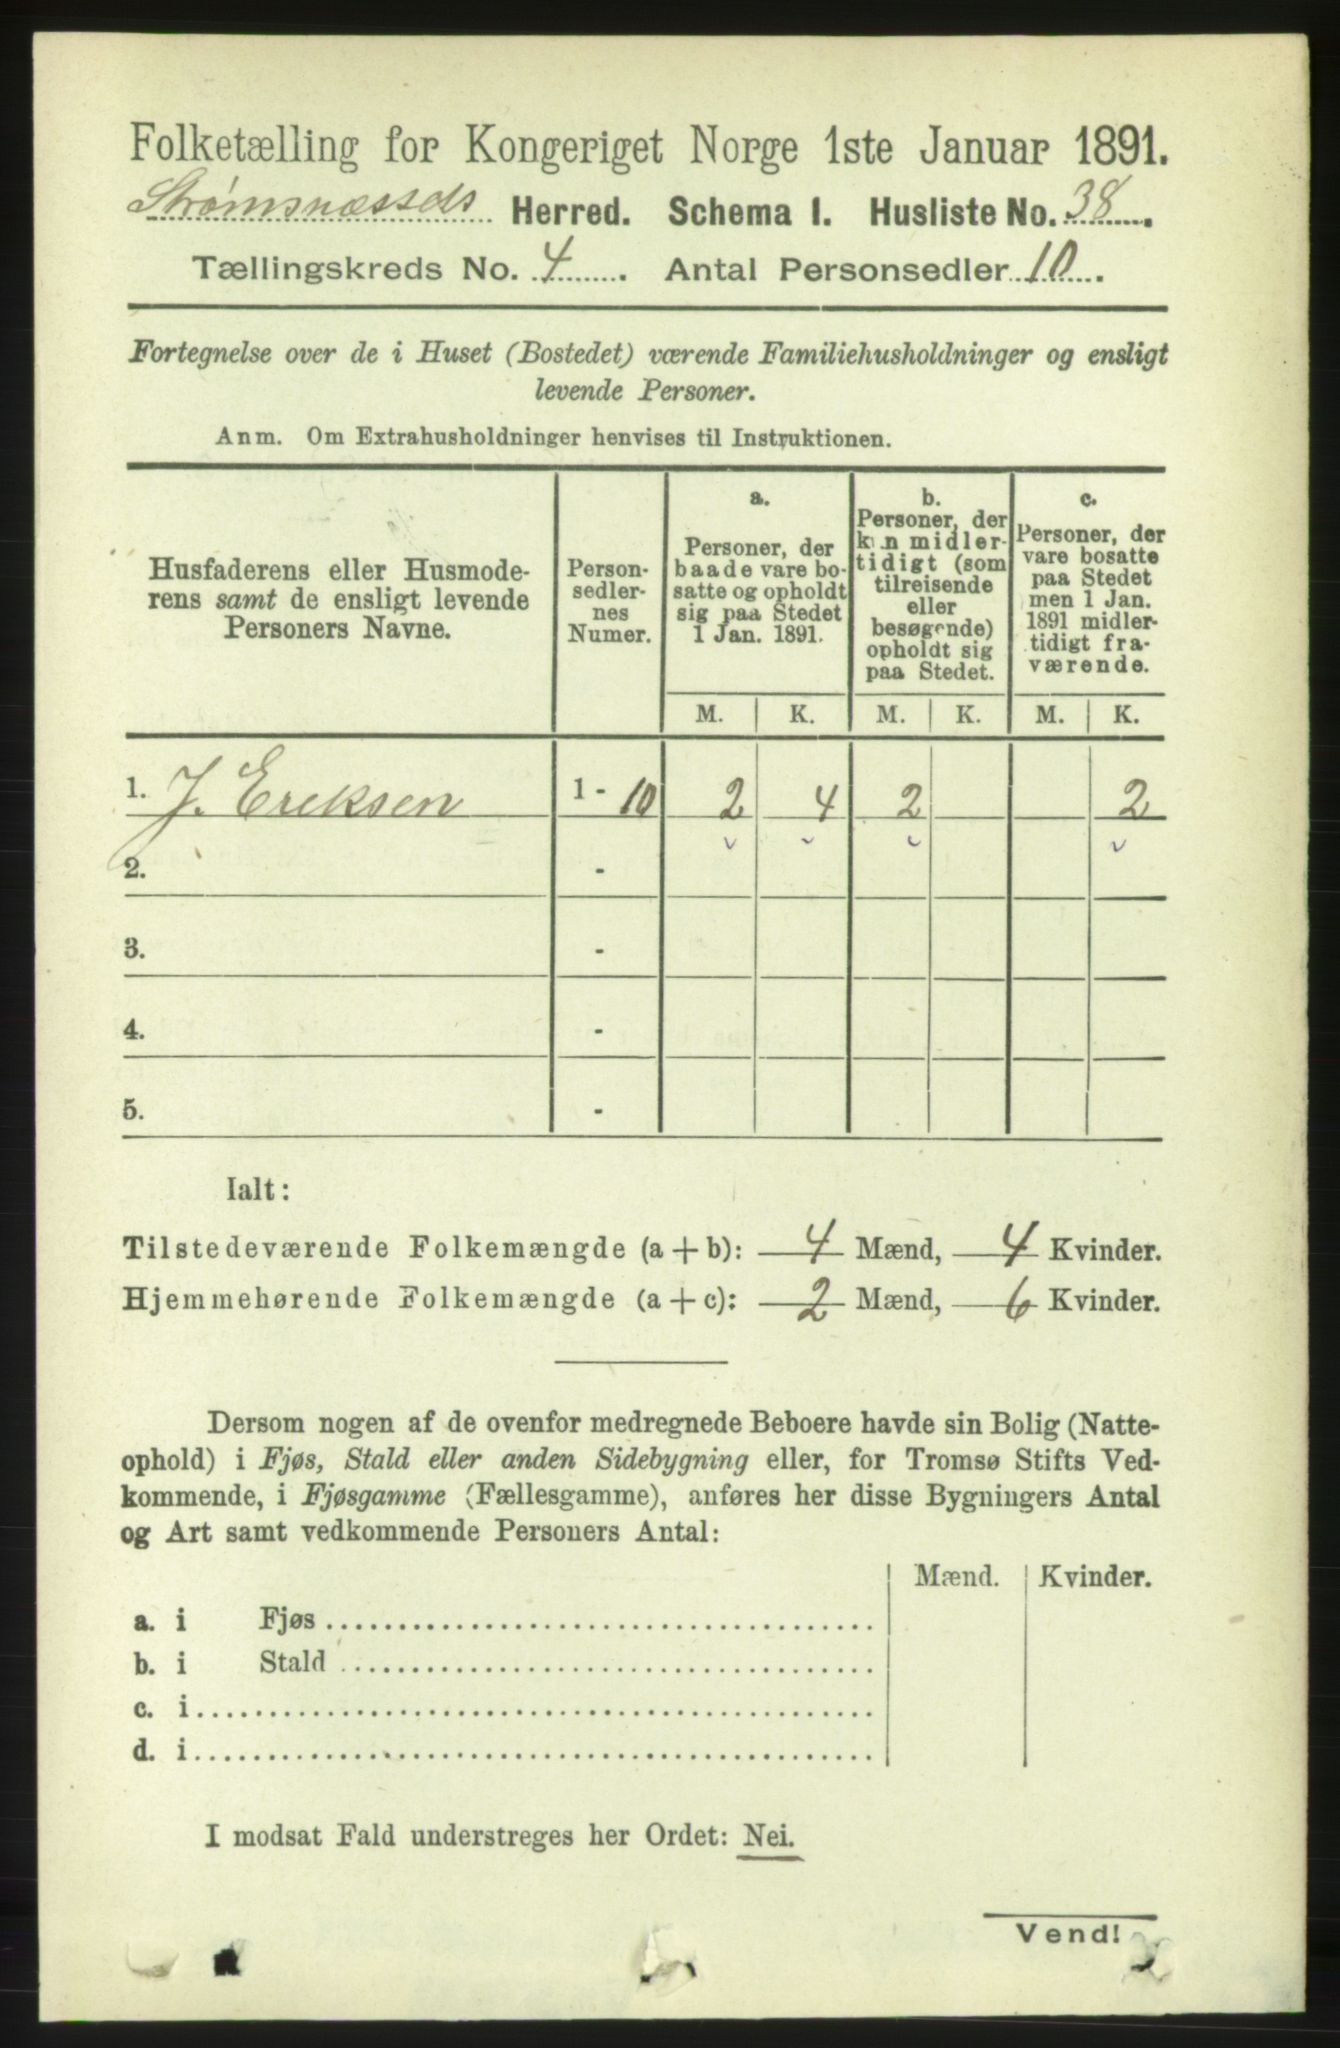 Folketælling for Kongeriget Norge 1ste Januar 1891.
Strømsnæssets Herred. Schema I. Husliste No. 38.
Tællingskreds No. 4. Antal Personsedler 10.
Fortegnelse over de i Huset (Bostedet) værende Familiehusholdninger og ensligt
levende Personer.
Anm. Om Extrahusholdninger henvises til Instruktionen.
Husfaderens eller Husmode-
rens samt de ensligt levende
Personers Navne.
Person-
sedler-
nes
Numer.
a.
Personer, der
baade vare bo-
satte og opholdt
sig paa Stedet
1 Jan. 1891.
b.
Personer, der
kun midler-
tidigt (som
tilreisende
eller
besøgende)
opholdt sig
paa Stedet.
c.
Personer, der
vare bosatte
paa Stedet
men 1 Jan.
1891 midler-
tidigt fra-
værende.
M. K. M. K. M. K.
1. J. Ereksen 1 - 10 2 4 2 2
2. -
3. -
4. -
5. -
Ialt:
Tilstedeværende Folkemængde (a + b): 4 Mænd, 4 Kvinder.
Hjemmehørende Folkemængde (a + c): 2 Mænd, 6 Kvinder.
Dersom nogen af de ovenfor medregnede Beboere havde sin Bolig (Natte-
ophold) i Fjøs, Stald eller anden Sidebygning eller, for Tromsø Stifts Ved-
kommende, i Fjøsgamme (Fællesgamme), anføres her disse Bygningers Antal
og Art samt vedkommende Personers Antal:
Mænd. Kvinder.
a. i Fjøs
b. i Stald
c. i
d. i
I modsat Fald understreges her Ordet: Nei.
Vend!